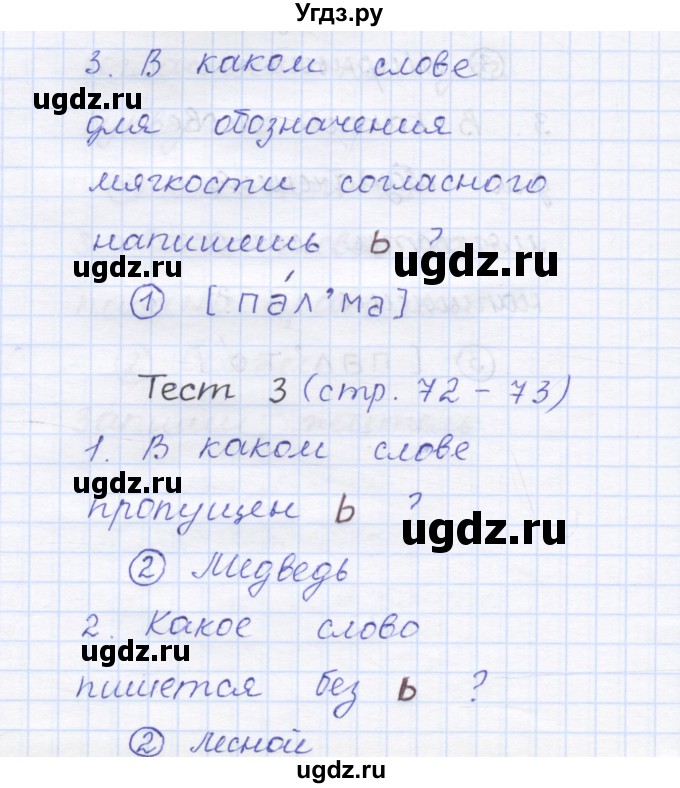 Угдз.ру
3. В каком слове
ugdz.ru
для обозначения
мягкости согласного
напишешь ь ?
ugdz.ru
ugdz.ru
① [па́л'ма]
Тест 3 (стр. 72 - 73)
1. В каком слове
ugdz.ru
пропущен ь ?
ugdz.ru
② Медведь
2. Какое слово
ugdz.ru
пишется без ь ?
② лесной
ugdz.ru